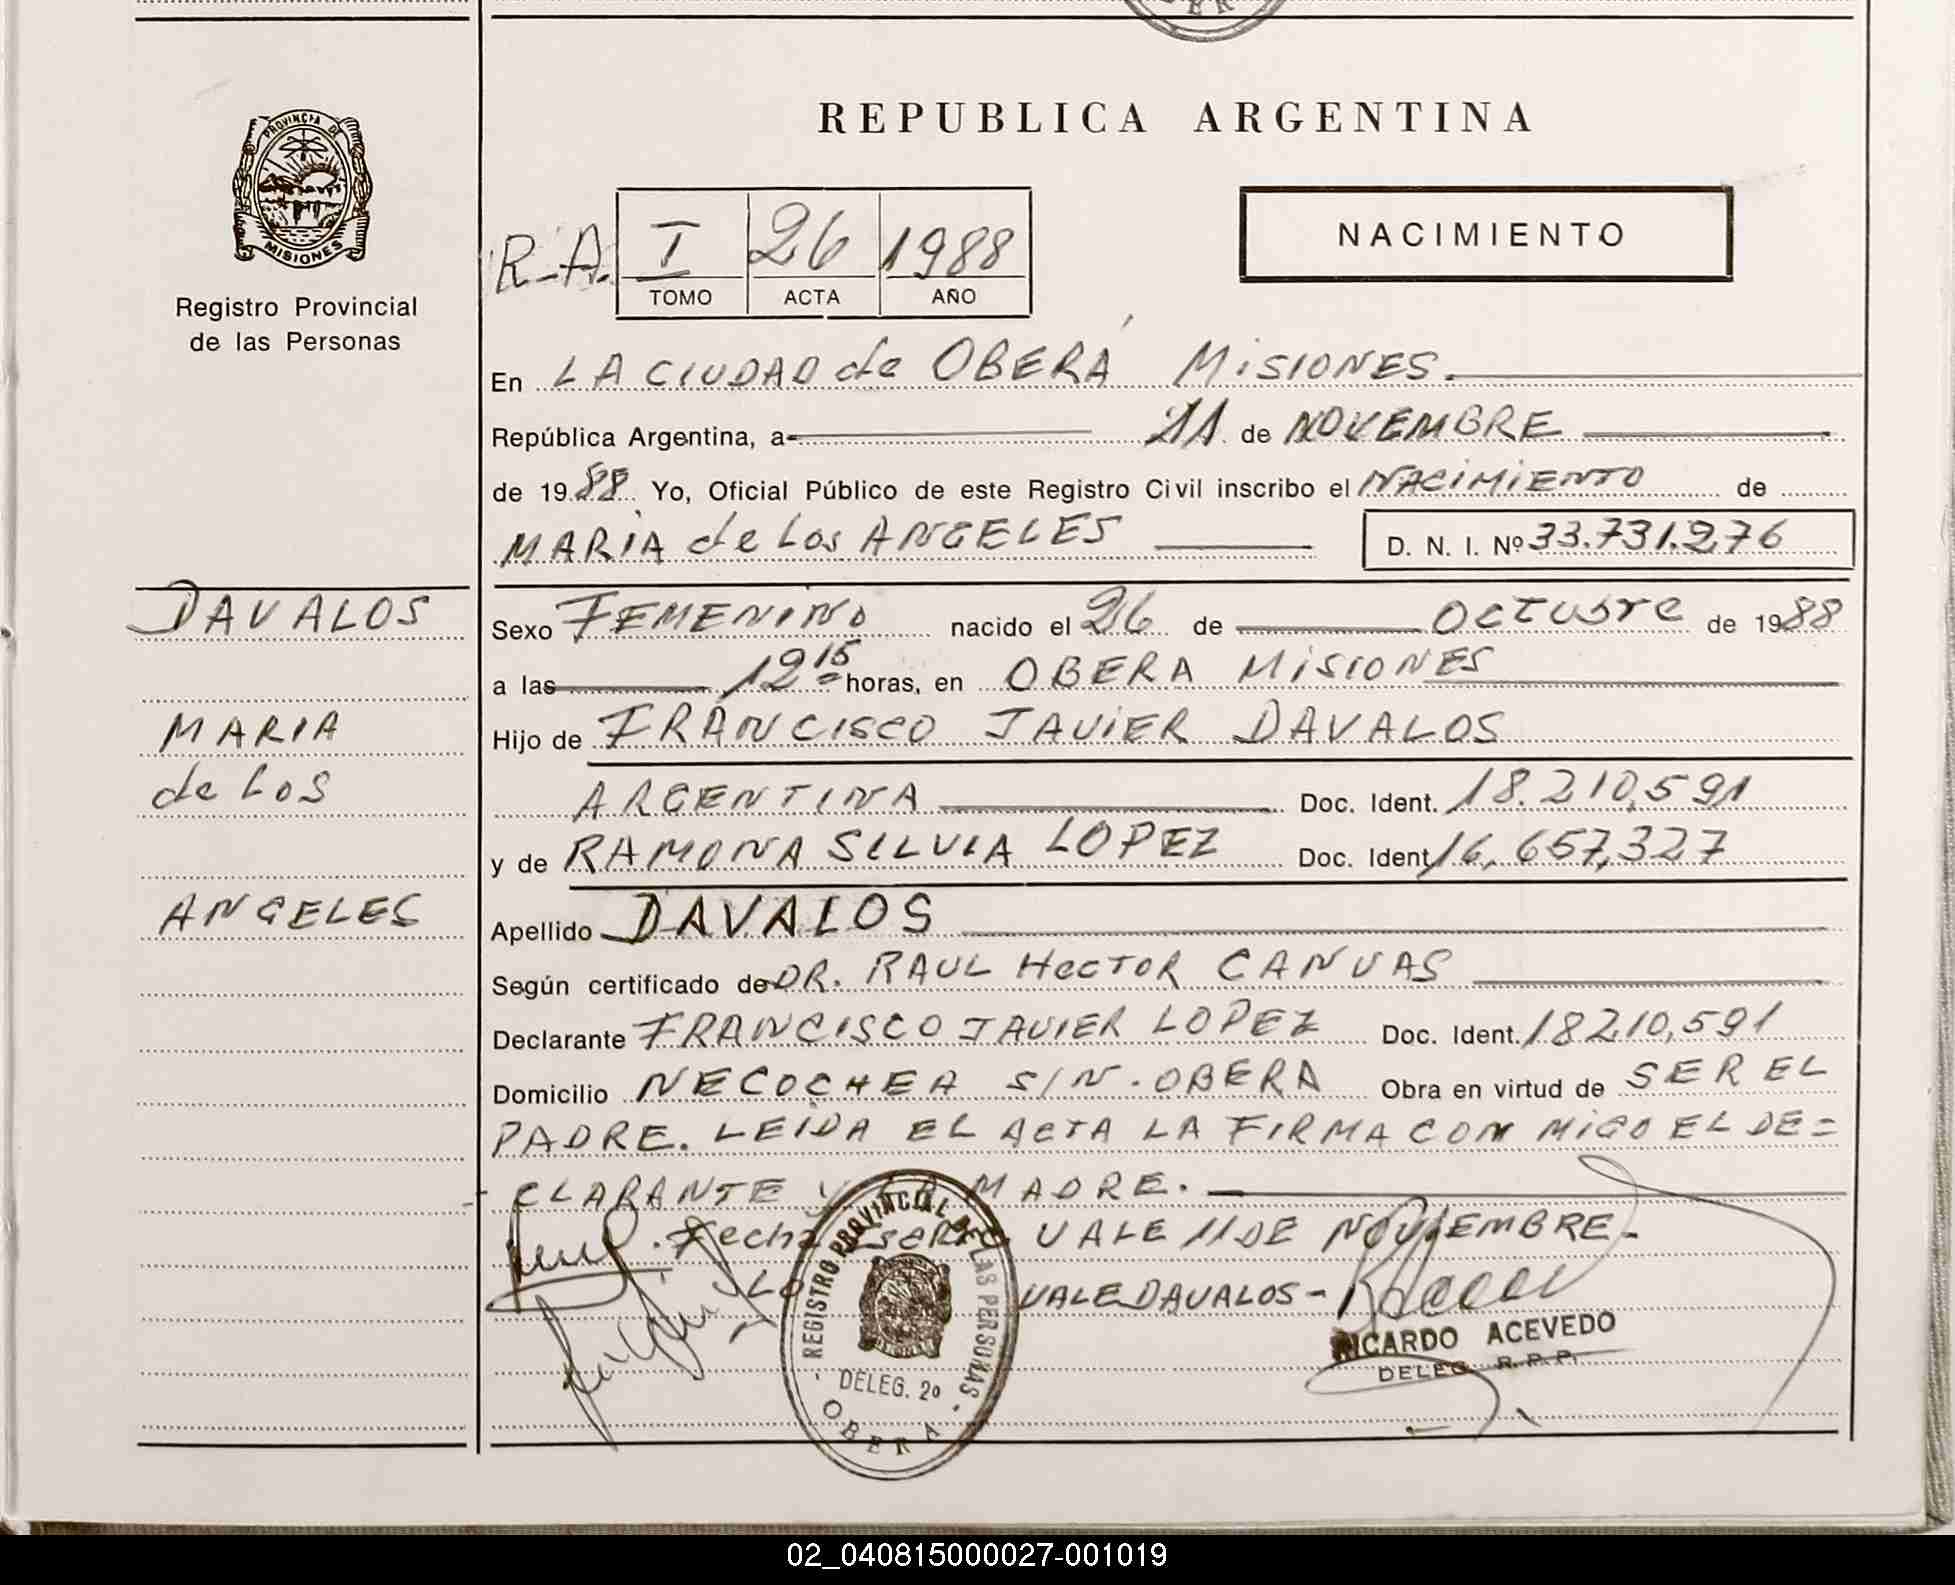 REPUBLICA ARGENTINA
PROVINCIA DE
MISIONES
Registro Provincial
de las Personas
R.A. I 26 1988
TOMO ACTA AÑO
NACIMIENTO
En LA CIUDAD de OBERÁ MISIONES.
República Argentina, a 11 de NOVEMBRE
de 1988 Yo, Oficial Público de este Registro Civil inscribo el NACIMIENTO de
MARIA de Los ANGELES D. N. I. Nº 33.731.276
DAVALOS
MARIA
de Los
ANGELES
Sexo FEMENINO nacido el 26 de OCTUBRE de 1988
a las 12 15 horas, en OBERA MISIONES
Hijo de FRANCISCO JAVIER DAVALOS
ARGENTINA Doc. Ident. 18.210,591
y de RAMONA SILVIA LOPEZ Doc. Ident 16,657,327
Apellido DAVALOS
Según certificado de DR. RAUL HECTOR CANVAS
Declarante FRANCISCO JAVIER LOPEZ Doc. Ident. 18210,591
Domicilio NECOCHEA S/N. OBERA Obra en virtud de SER EL
PADRE. LEIDA EL ACTA LA FIRMA CON MIGO EL DE=
CLARANTE y MADRE.
Fecha VALE 11 DE NOVIEMBRE.
VALE DAVALOS-
REGISTRO PROVINCIAL DE LAS PERSONAS
DELEG. 2º
OBERA
RICARDO ACEVEDO
DELEG. R.P.P.
02_040815000027-001019